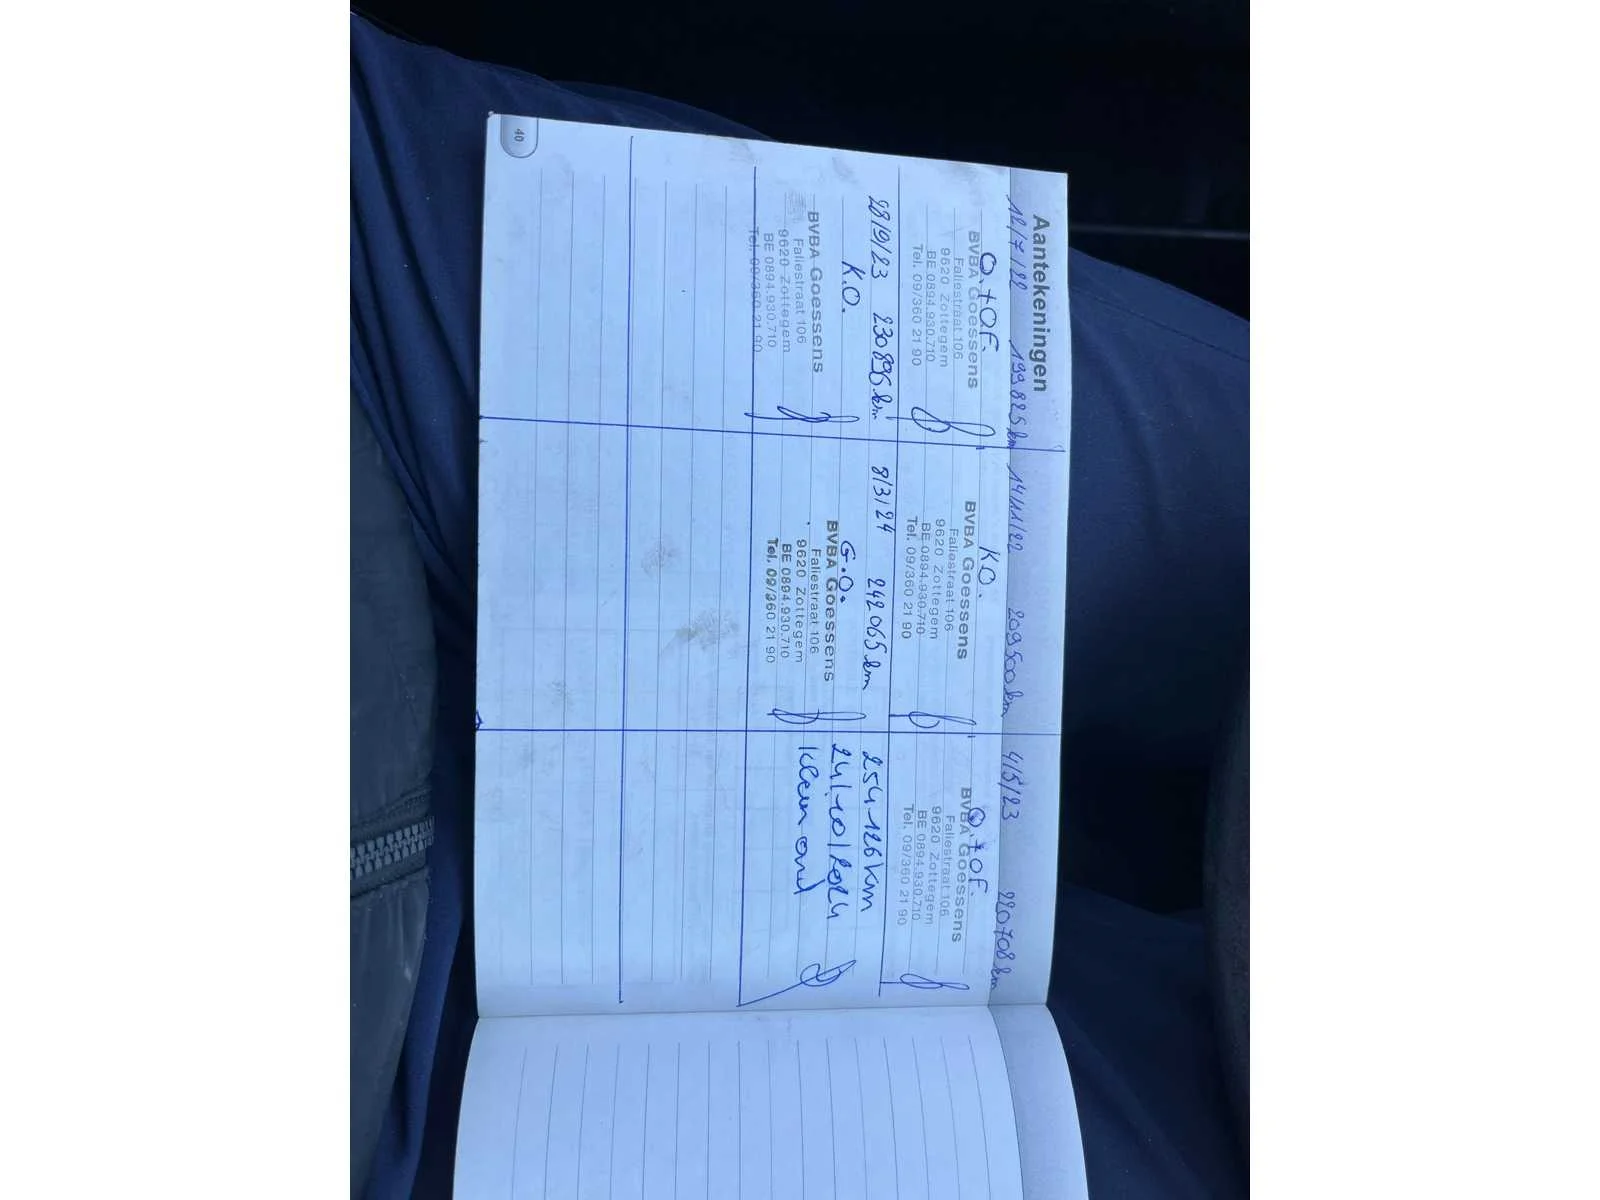 Aantekeningen
12/7/22 199825 km
O.+O.F.
BVBA Goessens
Faliestraat 106
9620 Zottegem
BE 0894.930.710
Tel. 09/360 21 90
14/11/22 209500 km
K.O.
BVBA Goessens
Faliestraat 106
9620 Zottegem
BE 0894.930.710
Tel. 09/360 21 90
4/5/23 220708 km
O.+O.F.
BVBA Goessens
Faliestraat 106
9620 Zottegem
BE 0894.930.710
Tel. 09/360 21 90
28/9/23 230896 km
K.O.
BVBA Goessens
Faliestraat 106
9620 Zottegem
BE 0894.930.710
Tel. 09/360 21 90
8/3/24 242065 km
G.O.
BVBA Goessens
Faliestraat 106
9620 Zottegem
BE 0894.930.710
Tel. 09/360 21 90
254126 km
24/10/2024
Klein ond
40